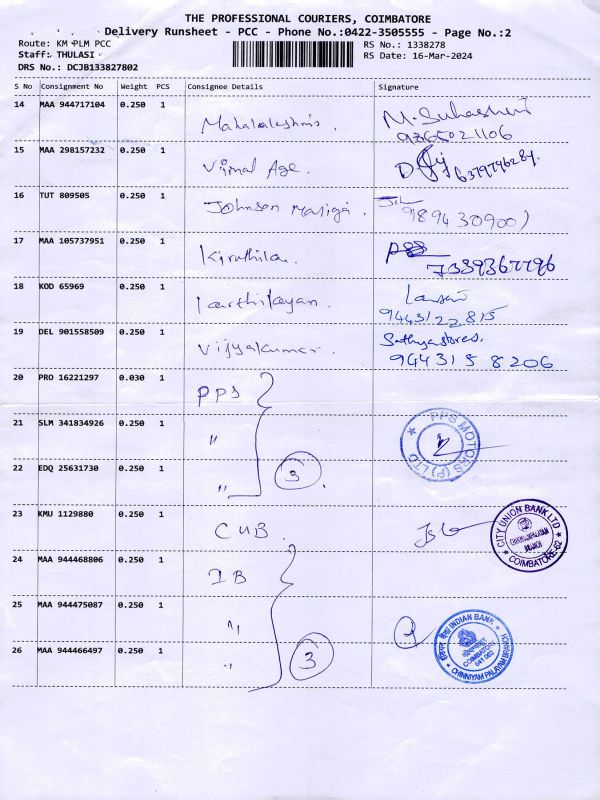 THE PROFESSIONAL COURIERS, COIMBATORE
Delivery Runsheet - PCC - Phone No.:0422-3505555 - Page No.:2
Route: KM PLM PCC
RS No.: 1338278
Staff: THULASI
RS Date: 16-Mar-2024
DRS No.: DCJB133827802
S No Consignment No Weight PCS Consignee Details Signature
14 MAA 944717104 0.250 1 Mahalakshmi. M. Suhashini
9865021106
15 MAA 298157232 0.250 1 Vimal Age. 6379796289.
16 TUT 809505 0.250 1 Johnson Matiga. 9894309001
17 MAA 105737951 0.250 1 Kiruthika.
7339367796
18 KOD 65969 0.250 1 karthikayan.
9443122815
19 DEL 901558509 0.250 1 Vijyakumar. Sathyastores.
944315 8206
20 PRO 16221297 0.030 1 PPS
21 SLM 341834926 0.250 1 "
PPS MOTORS (P) LTD
22 EDQ 25631730 0.250 1 "
3
23 KMU 1129880 0.250 1 CUB.
CITY UNION BANK LTD
COIMBATORE-62
24 MAA 944468806 0.250 1 IB
25 MAA 944475087 0.250 1 "
INDIAN BANK
COIMBATORE
641 062
CHINNIYAM PALAYAM BRANCH
26 MAA 944466497 0.250 1 "
3